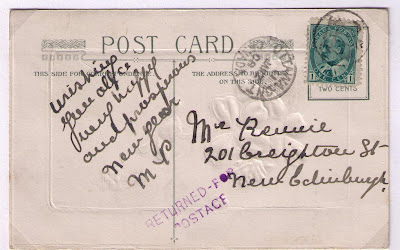 POST CARD
THIS SIDE FOR CORRESPONDENCE.
THE ADDRESS TO BE WRITTEN ON THIS SIDE.
TWO CENTS
1
1
Wishing
you all a
very happy
and prosperous
New year
M P
Mr Rennie
201 Creighton St
New Edinburgh
RETURNED-FOR
POSTAGE